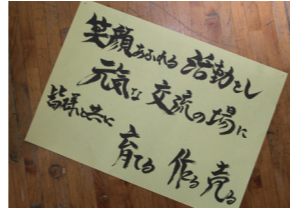 笑顔あふれる活動をし
元気な交流の場に
皆様と共に
育てる 作る 売る